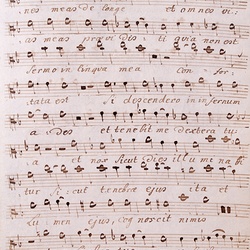 nes meas de longe et omnes vi
as meas previdisti quia non est
sermo in lingua mea confor
tata est si descendero in infernum
ades et tenebit me dextera tu
a et nox sicut dies illuminabi
tur sicut tenebræ ejus ita et
lumen ejus cognoscit nimis